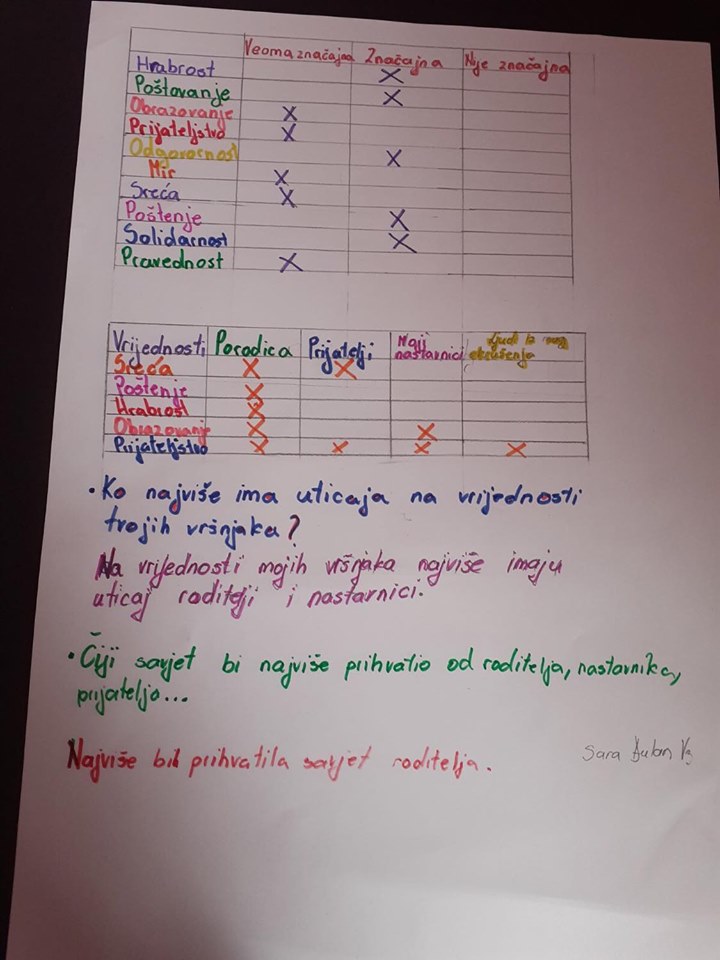 Veoma značajna Značajna Nije značajna
Hrabrost X
Poštovanje X
Obrazovanje X
Prijateljstvo X
Odgovornost X
Mir X
Sreća X
Poštenje X
Solidarnost X
Pravednost X
Vrijednosti Porodica Prijatelji Moji nastavnici Ljudi iz mog okruženja
Sreća X X
Poštenje X
Hrabrost X
Obrazovanje X X
Prijateljstvo X X X X
• Ko najviše ima uticaja na vrijednosti
tvojih vršnjaka?
Na vrijednosti mojih vršnjaka najviše imaju
uticaj roditelji i nastavnici.
• Čiji savjet bi najviše prihvatio od roditelja, nastavnika,
prijatelja...
Najviše bih prihvatila savjet roditelja.
Sara